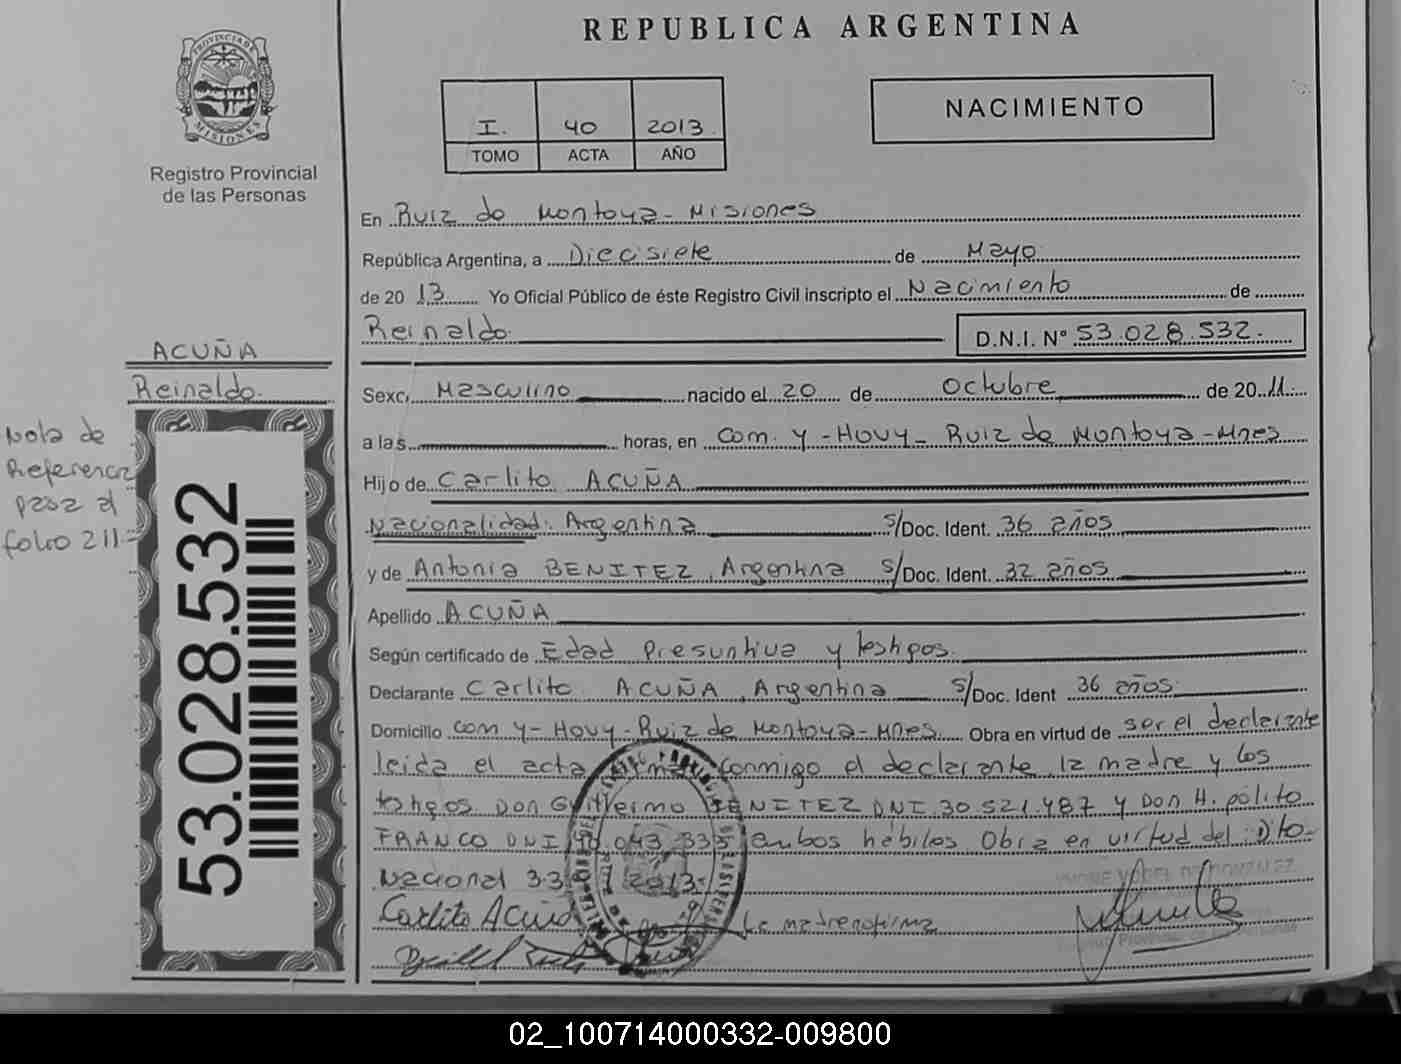 REPUBLICA ARGENTINA
PROVINCIA DE
MISIONES
Registro Provincial
de las Personas
I. 40 2013
TOMO ACTA AÑO
NACIMIENTO
En Ruiz de Montoya - Misiones
República Argentina, a Diecisiete de Mayo
de 20 13 Yo Oficial Público de éste Registro Civil inscripto el Nacimiento de
Reinaldo. D.N.I. Nº 53.028.532.-
ACUÑA
Reinaldo.
Nota de
Referencia
pasa al
folio 211=
53.028.532
Sexo, Masculino nacido el 20 de Octubre de 20 11.-
a las horas, en Com. Y-Hovy- Ruiz de Montoya-Mnes
Hijo de Carlito ACUÑA
Nacionalidad: Argentina s/Doc. Ident. 36 años
y de Antonia BENITEZ, Argentina s/Doc. Ident. 32 años
Apellido ACUÑA
Según certificado de Edad Presuntiva y testigos.
Declarante Carlito ACUÑA, Argentina s/Doc. Ident 36 años.
Domicilio Com Y-Hovy-Ruiz de Montoya-Mnes. Obra en virtud de ser el declarante
leida el acta conmigo el declarante, la madre y los
testigos Don Guillermo BENITEZ DNI.30.521.487 y Don H. polito
FRANCO DNI 043.335 ambos hábiles Obra en virtud del Dto-
Nacional 2013.-
Carlito Acuña La madre no firma